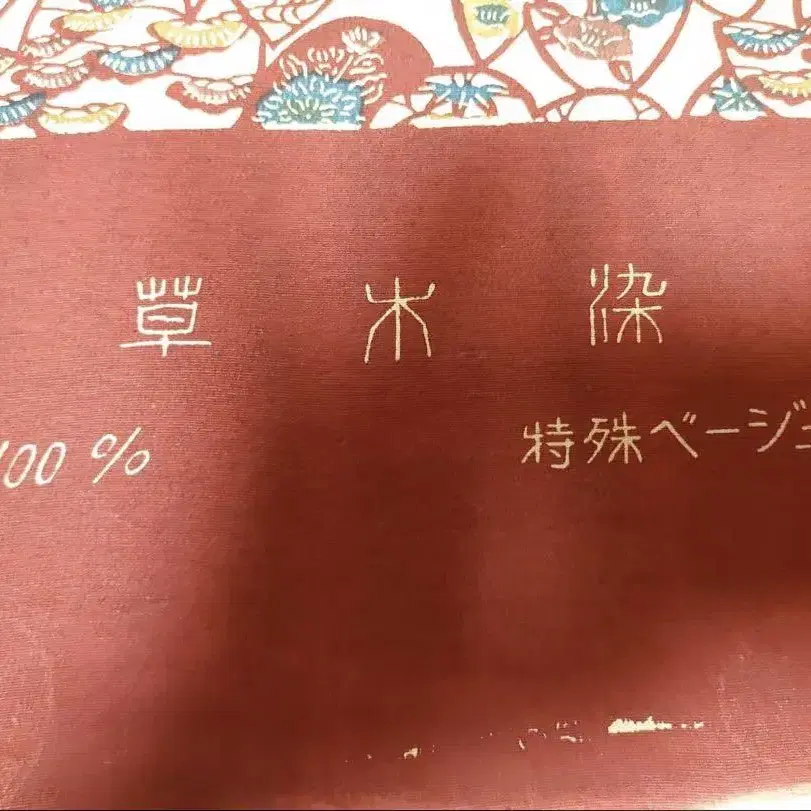 草木染
100% 特殊ベージュ